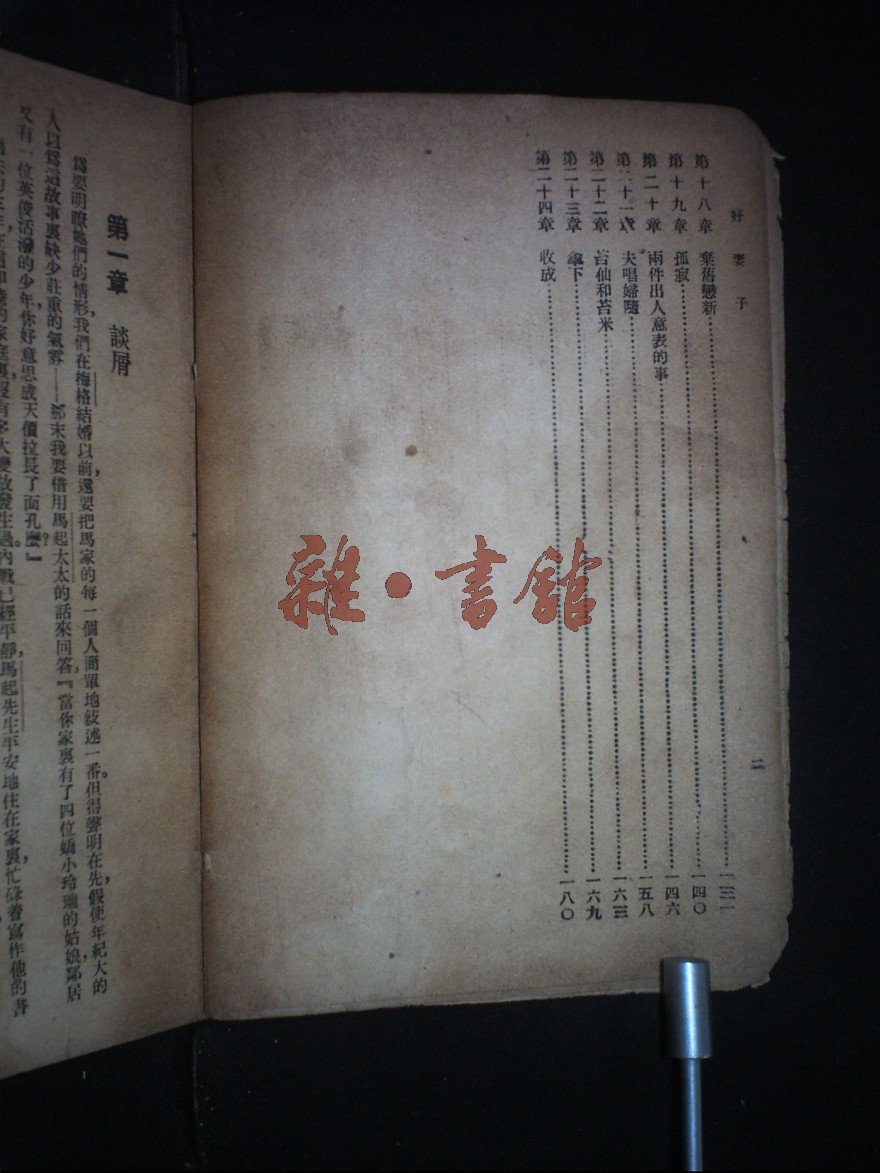 好妻子
二
第十八章 棄舊戀新……一三一
第十九章 孤寂……一四〇
第二十章 兩件出人意表的事……一四六
第二十一章 夫唱婦隨……一五八
第二十二章 苔仙和苔米……一六三
第二十三章 拿下……一六九
第二十四章 收成……一八〇
第一章 談屑
爲要明瞭她們的情形,我們在梅格結婚以前,還要把馬家的每一個人簡單地敍述一番。但得聲明在先,假使年紀大的
人以爲這故事裏缺少莊重的氣雰——那末我要借用馬起太太的話來回答,『當你家裏有了四位嬌小玲瓏的姑娘,鄰居
又有一位英俊活潑的少年,你好意思成天價拉長了面孔麼?』
的家庭裏沒有多大變故發生過。內戰已經平靜,馬起先生平安地住在家裏,忙碌着寫作他的書
雜·書館